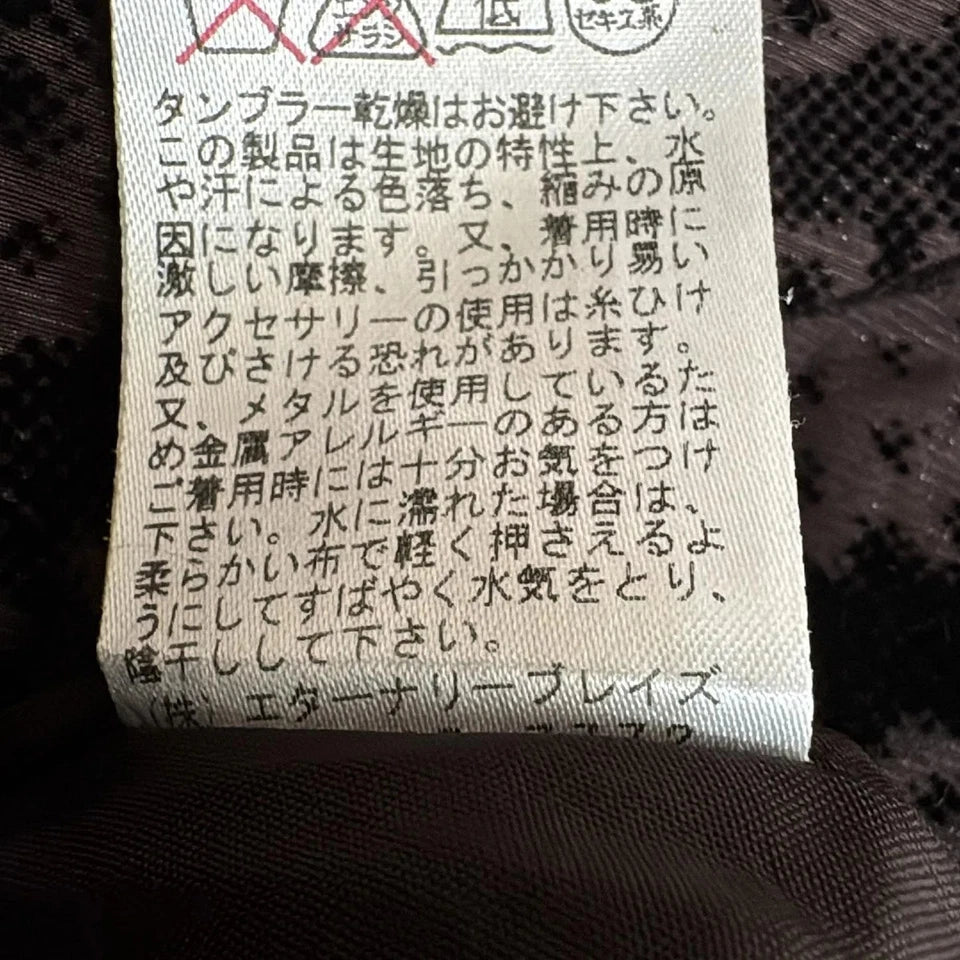 エンソ
サラシ
低
セキユ系
タンブラー乾燥はお避け下さい。
この製品は生地の特性上、水
や汗による色落ち、縮みの原
因になります。又、着用時に
激しい摩擦、引っかかり易い
アクセサリーの使用は糸ひけ
及びさける恐れがあります。
又、メタルを使用しているた
め金属アレルギーのある方は
ご着用時には十分お気をつけ
下さい。水に濡れた場合は、
柔らかい布で軽く押さえるよ
うにしてすばやく水気をとり、
陰干しして下さい。
(株)エターナリーブレイズ